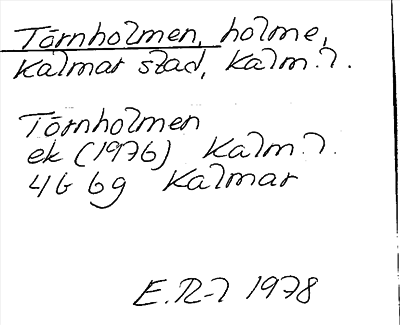 Törnholmen, holme,
Kalmar stad, Kalm. l.
Törnholmen
ek (1976) Kalm. l.
4G 6g Kalmar
E. R-l 1978